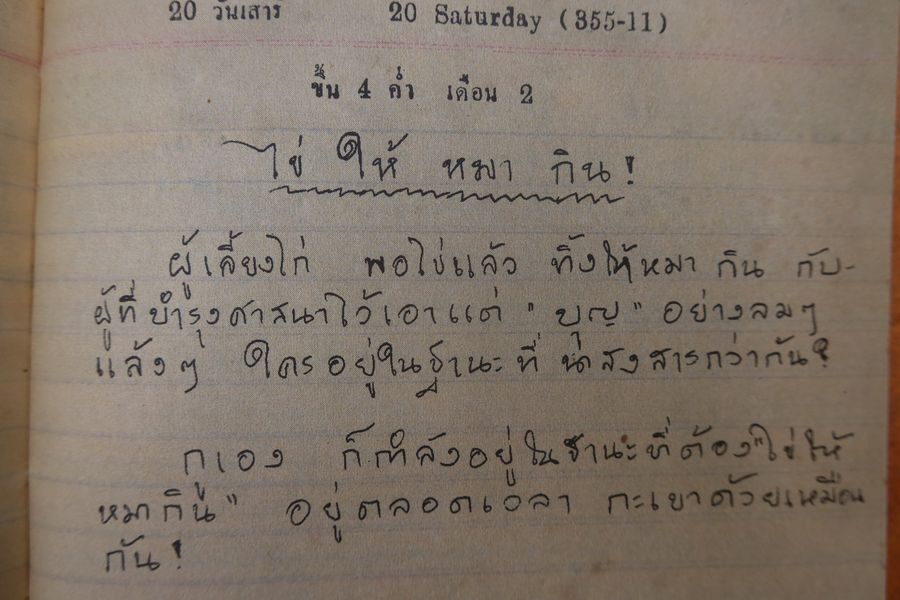 20 วันเสาร์ 20 Saturday (355-11)
ขึ้น 4 ค่ำ เดือน 2
ไข่ ให้ หมา กิน!
ผู้เลี้ยงไก่ พอไข่แล้ว ทิ้งให้หมา กิน กับ-
ผู้ที่บำรุงศาสนาไว้เอาแต่ "บุญ" อย่างลมๆ
แล้งๆ ใครอยู่ในฐานะที่ น่าสงสารกว่ากัน?
กูเอง ก็กำลังอยู่ในฐานะที่ต้อง"ไข่ให้
หมากิน" อยู่ตลอดเวลา กะเขาด้วยเหมือน
กัน!